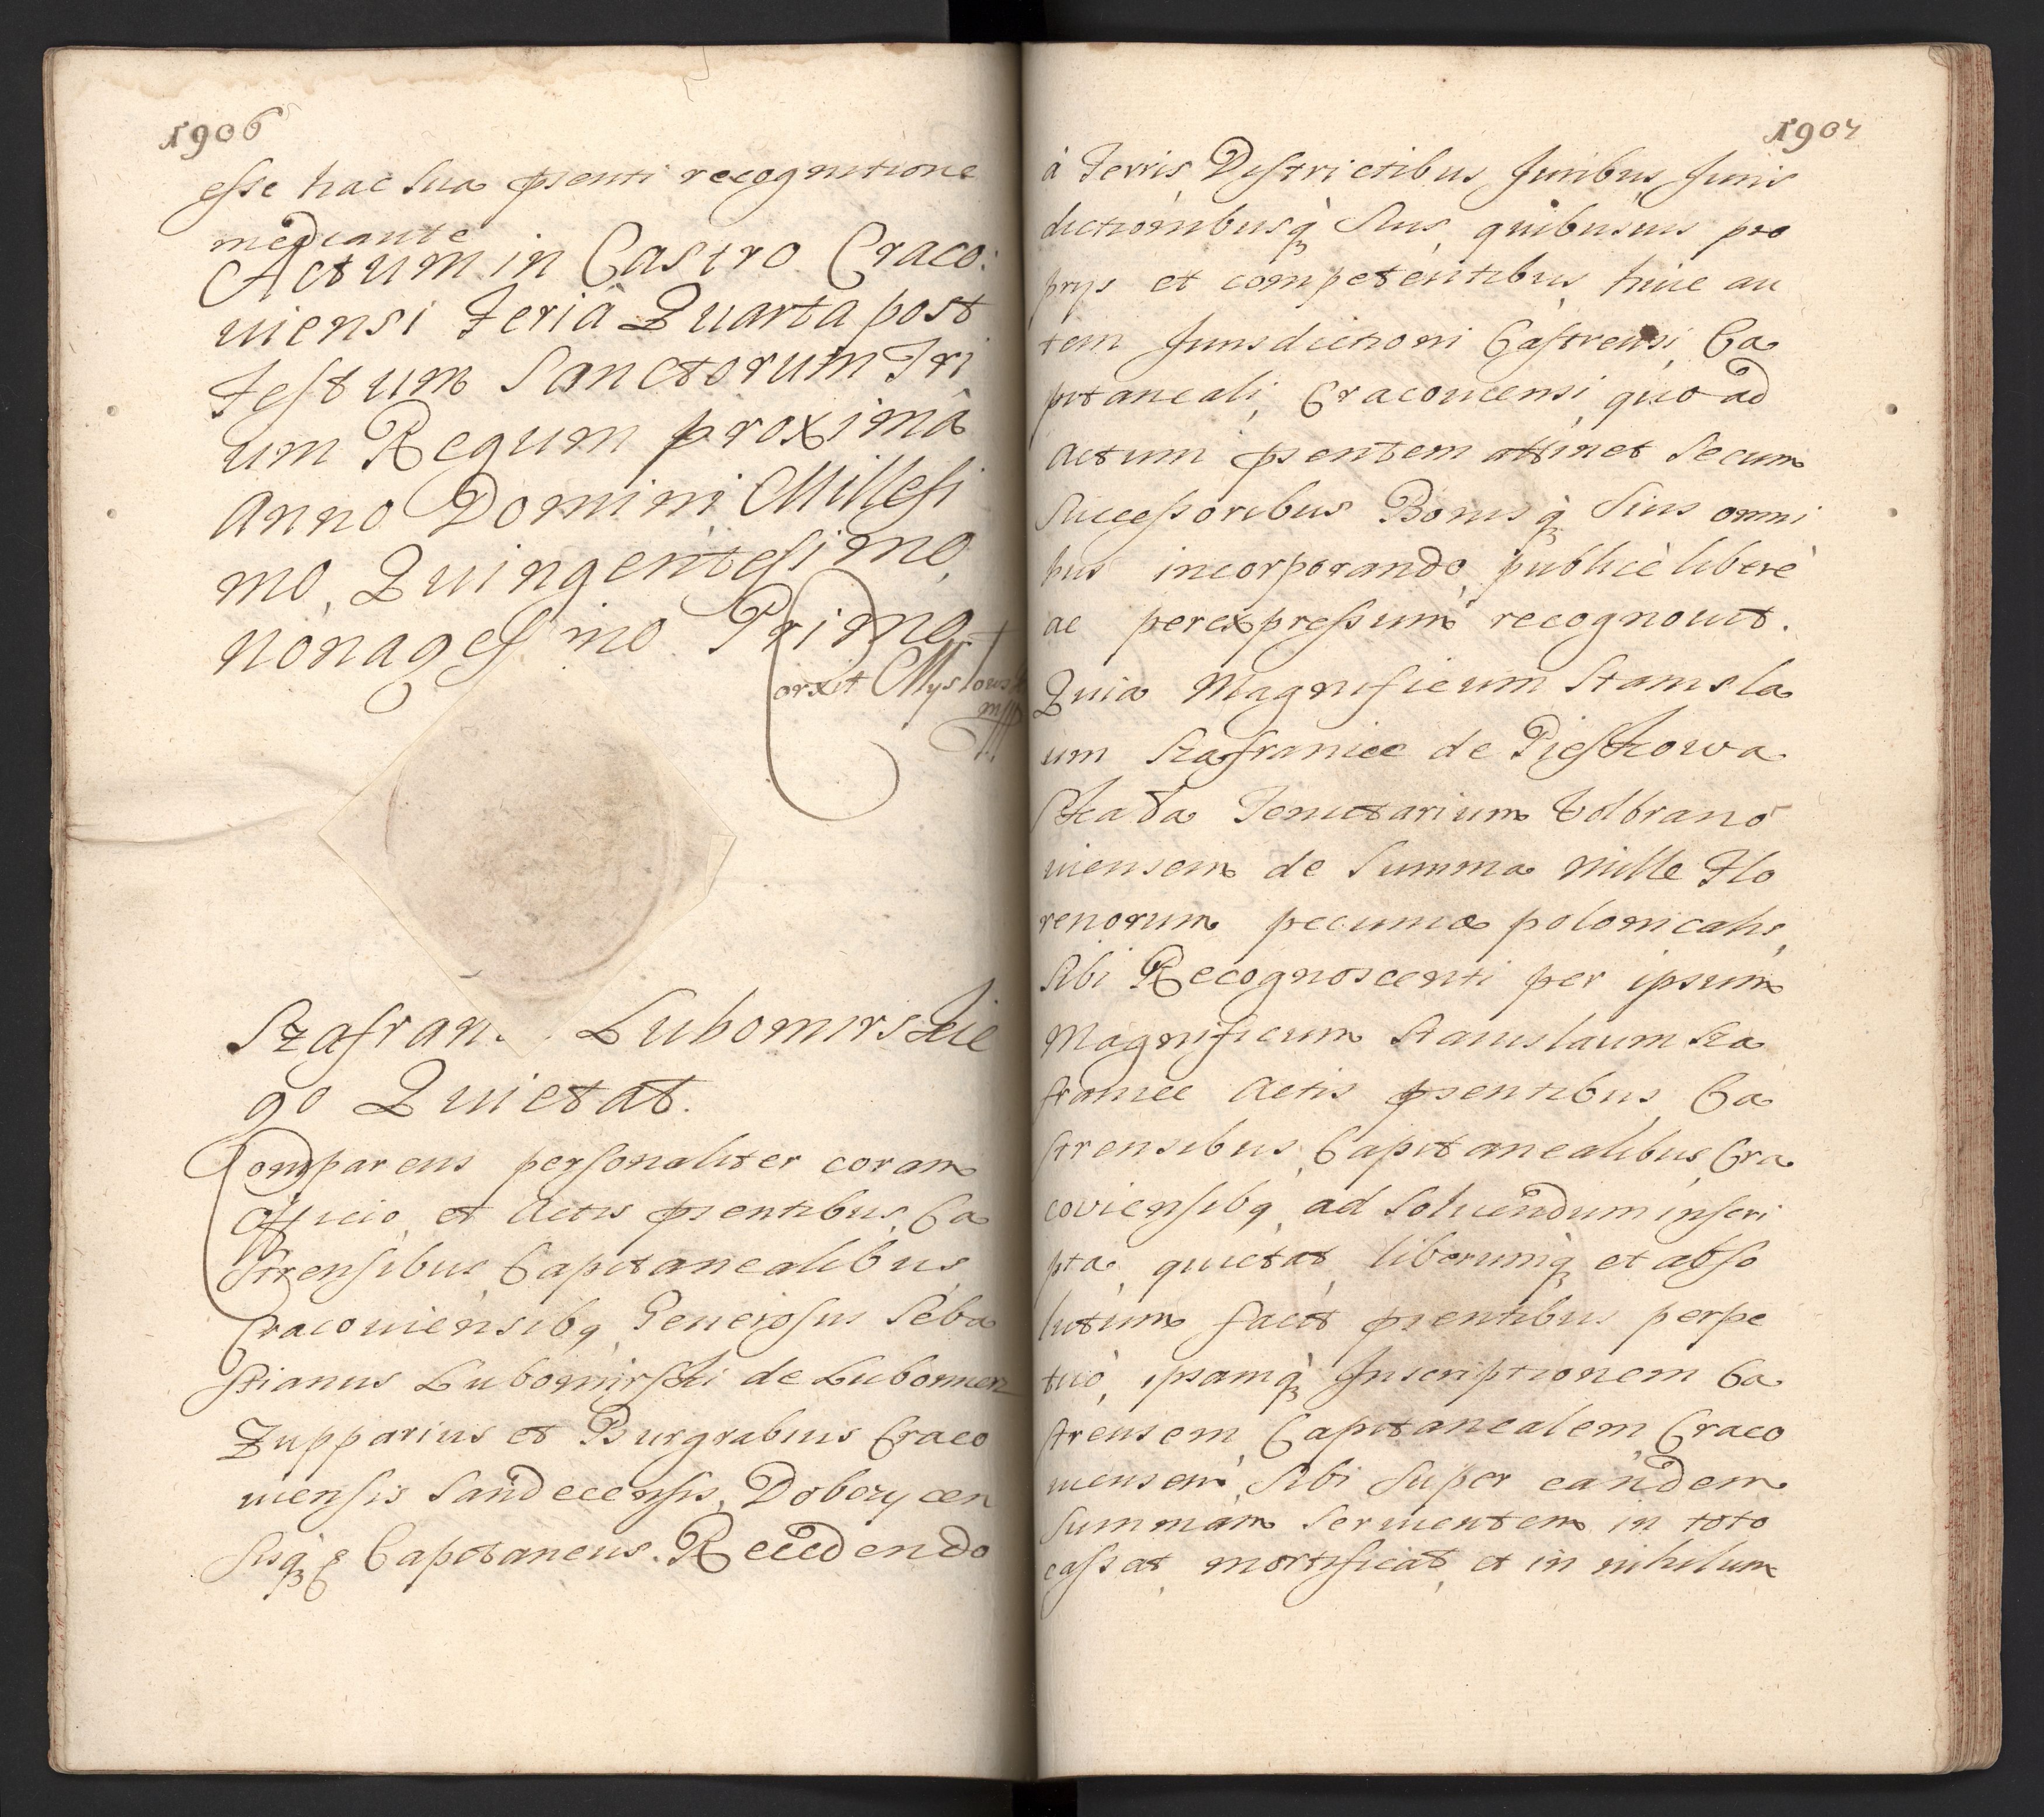 1906
esse hac sua pnti recognitione
mediante
Actum in Castro Craco:
uiensi Feriâ Quarta post
Festum Sanctorum Tri
um Regum proximâ
Anno Domini Millesi
mo, Quingentesimo,
nonagesimo Primo
orxit Myslows
mpp
Szafran Lubomirskie
go Quietat.
Comparens personaliter coram
Officio, et Actis psentibus, Ca
strensibus Capitanealibus
Cracouiensibq Generosus Seba
stianus Lubomirski de Lubomierz
Zupparius et Burgrabius Craco
uiensis Sandecensis, Dobczycen
sisq & Capitaneus. Recedendo
1907
à Terris, Districtibus, Juribus, Juris
dictionibusq̀ Suis, quibusuis pro
prys et competentibus, hinc au
tem Jurisdictioni Castrensi, Ca
pitaneali, Cracouiensi, quo ad
Actum psentem attinet Secum
Successoribus Bonisq̀ Suis omni
bus incorporando, publicè liberè
ac per expressum recognouit.
Quia Magnificum Stanisla
um Szafraniec de Pieskowa
Skała Tenutarium Wolbramo
uiensem de Summa Mille Flo
renorum pecuniæ polonicalis,
Sibi Recognoscenti per ipsum
Magnificum Stanislaum Sza
franiec Actis psentibus, Ca
strensibus, Capitanealibus, Cra
coviensibq, ad Soluendum inscri
pta, quietat, liberumq̀ et abso
lutum facit psentibus perpe
tuò, ipsamq̀ Inscriptionem Ca
strensem, Capitanealem, Craco
uiensem, Sibi Super eandem
Summam Seruientem in toto
cassat, mortificat, et in nihilum